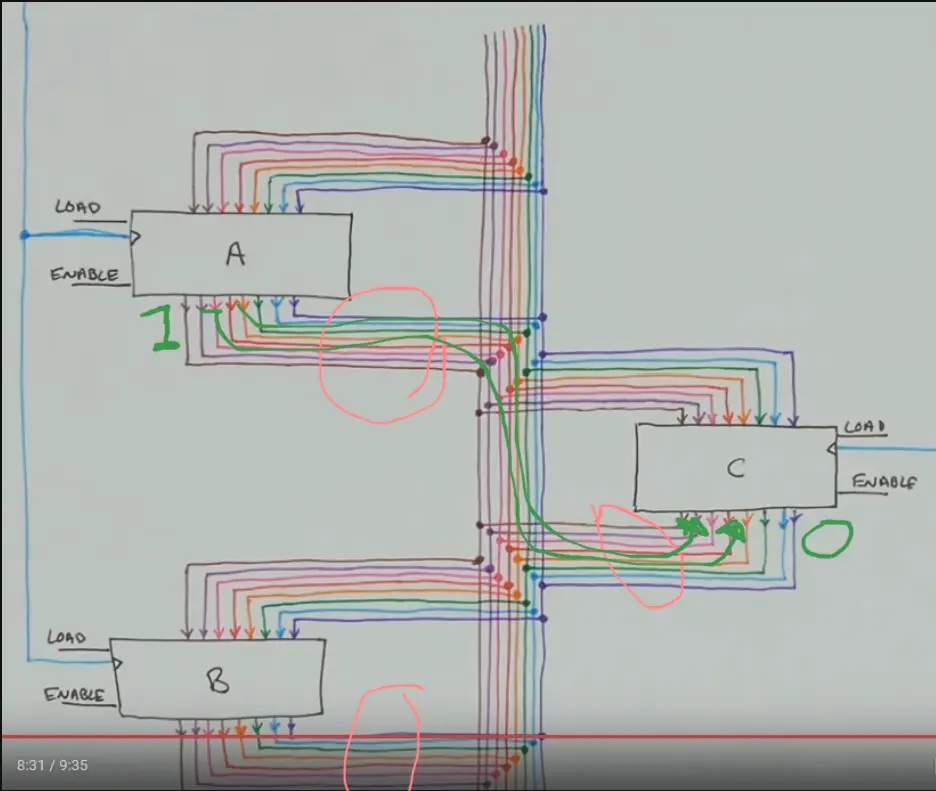 LOAD
A
ENABLE
1
LOAD
C
ENABLE
0
LOAD
B
ENABLE
8:31 / 9:35